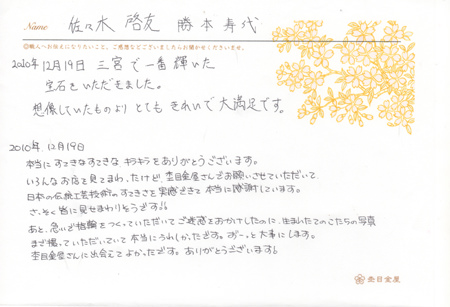 Name 佐々木 啓友 勝本 寿代
◎職人へお伝えになりたいこと、ご感想などございましたらお聞かせくださいませ。
2010年12月19日 三宮で一番輝いた
宝石をいただきました。
想像していたものより とても きれいで大満足です。
2010年12月19日
本当に すてきなすてきな キラキラをありがとうございます。
いろんなお店で見てまわったけど、杢目金屋さんでお願いさせていただいて、
日本の伝統工芸技術のすてきさを実感できて 本当に感謝しています。
さっそく皆に見せまわりそうです!!
あと、急いで指輪をつくっていただいてご迷惑をおかけしたのに、生まれたてのこたちの写真
まで撮っていただいていて 本当にうれしかったです。ずーっと大事にします。
杢目金屋さんに出会えて よかったです。ありがとうございます!
杢目金屋